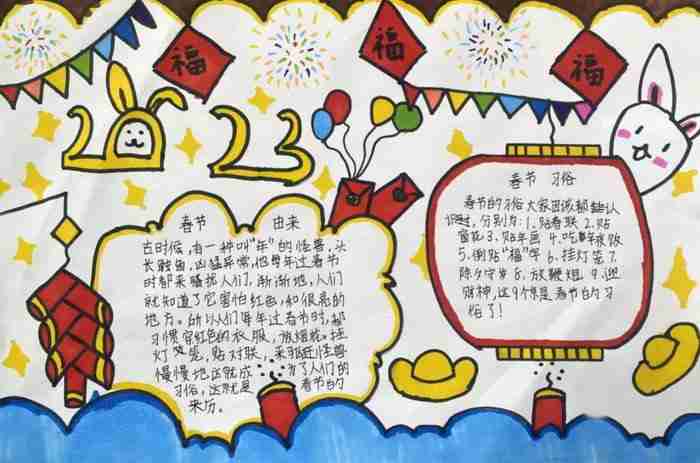 福
福
福
2023
春节 由来
古时候,有一种叫“年”的怪兽,头
长触角,凶猛异常,他每年过春节
时都来骚扰人们,渐渐地,人们
就知道了它害怕红色,和很亮的
地方。所以人们每年过春节时,都
习惯穿红色的衣服,放烟花。挂
灯笼,贴对联,来驱赶怪兽
慢慢地这就成了人们的
习俗,这就是春节的
来历。
春节 习俗
春节的习俗大家因该都
识过,分别为:1.贴春联 2.贴
窗花 3.贴年画 4.吃年夜饭
5.倒贴“福”字 6.挂灯笼 7.
除夕守岁 8.放鞭炮 9.迎
财神,这9个就是春节的习
俗了!